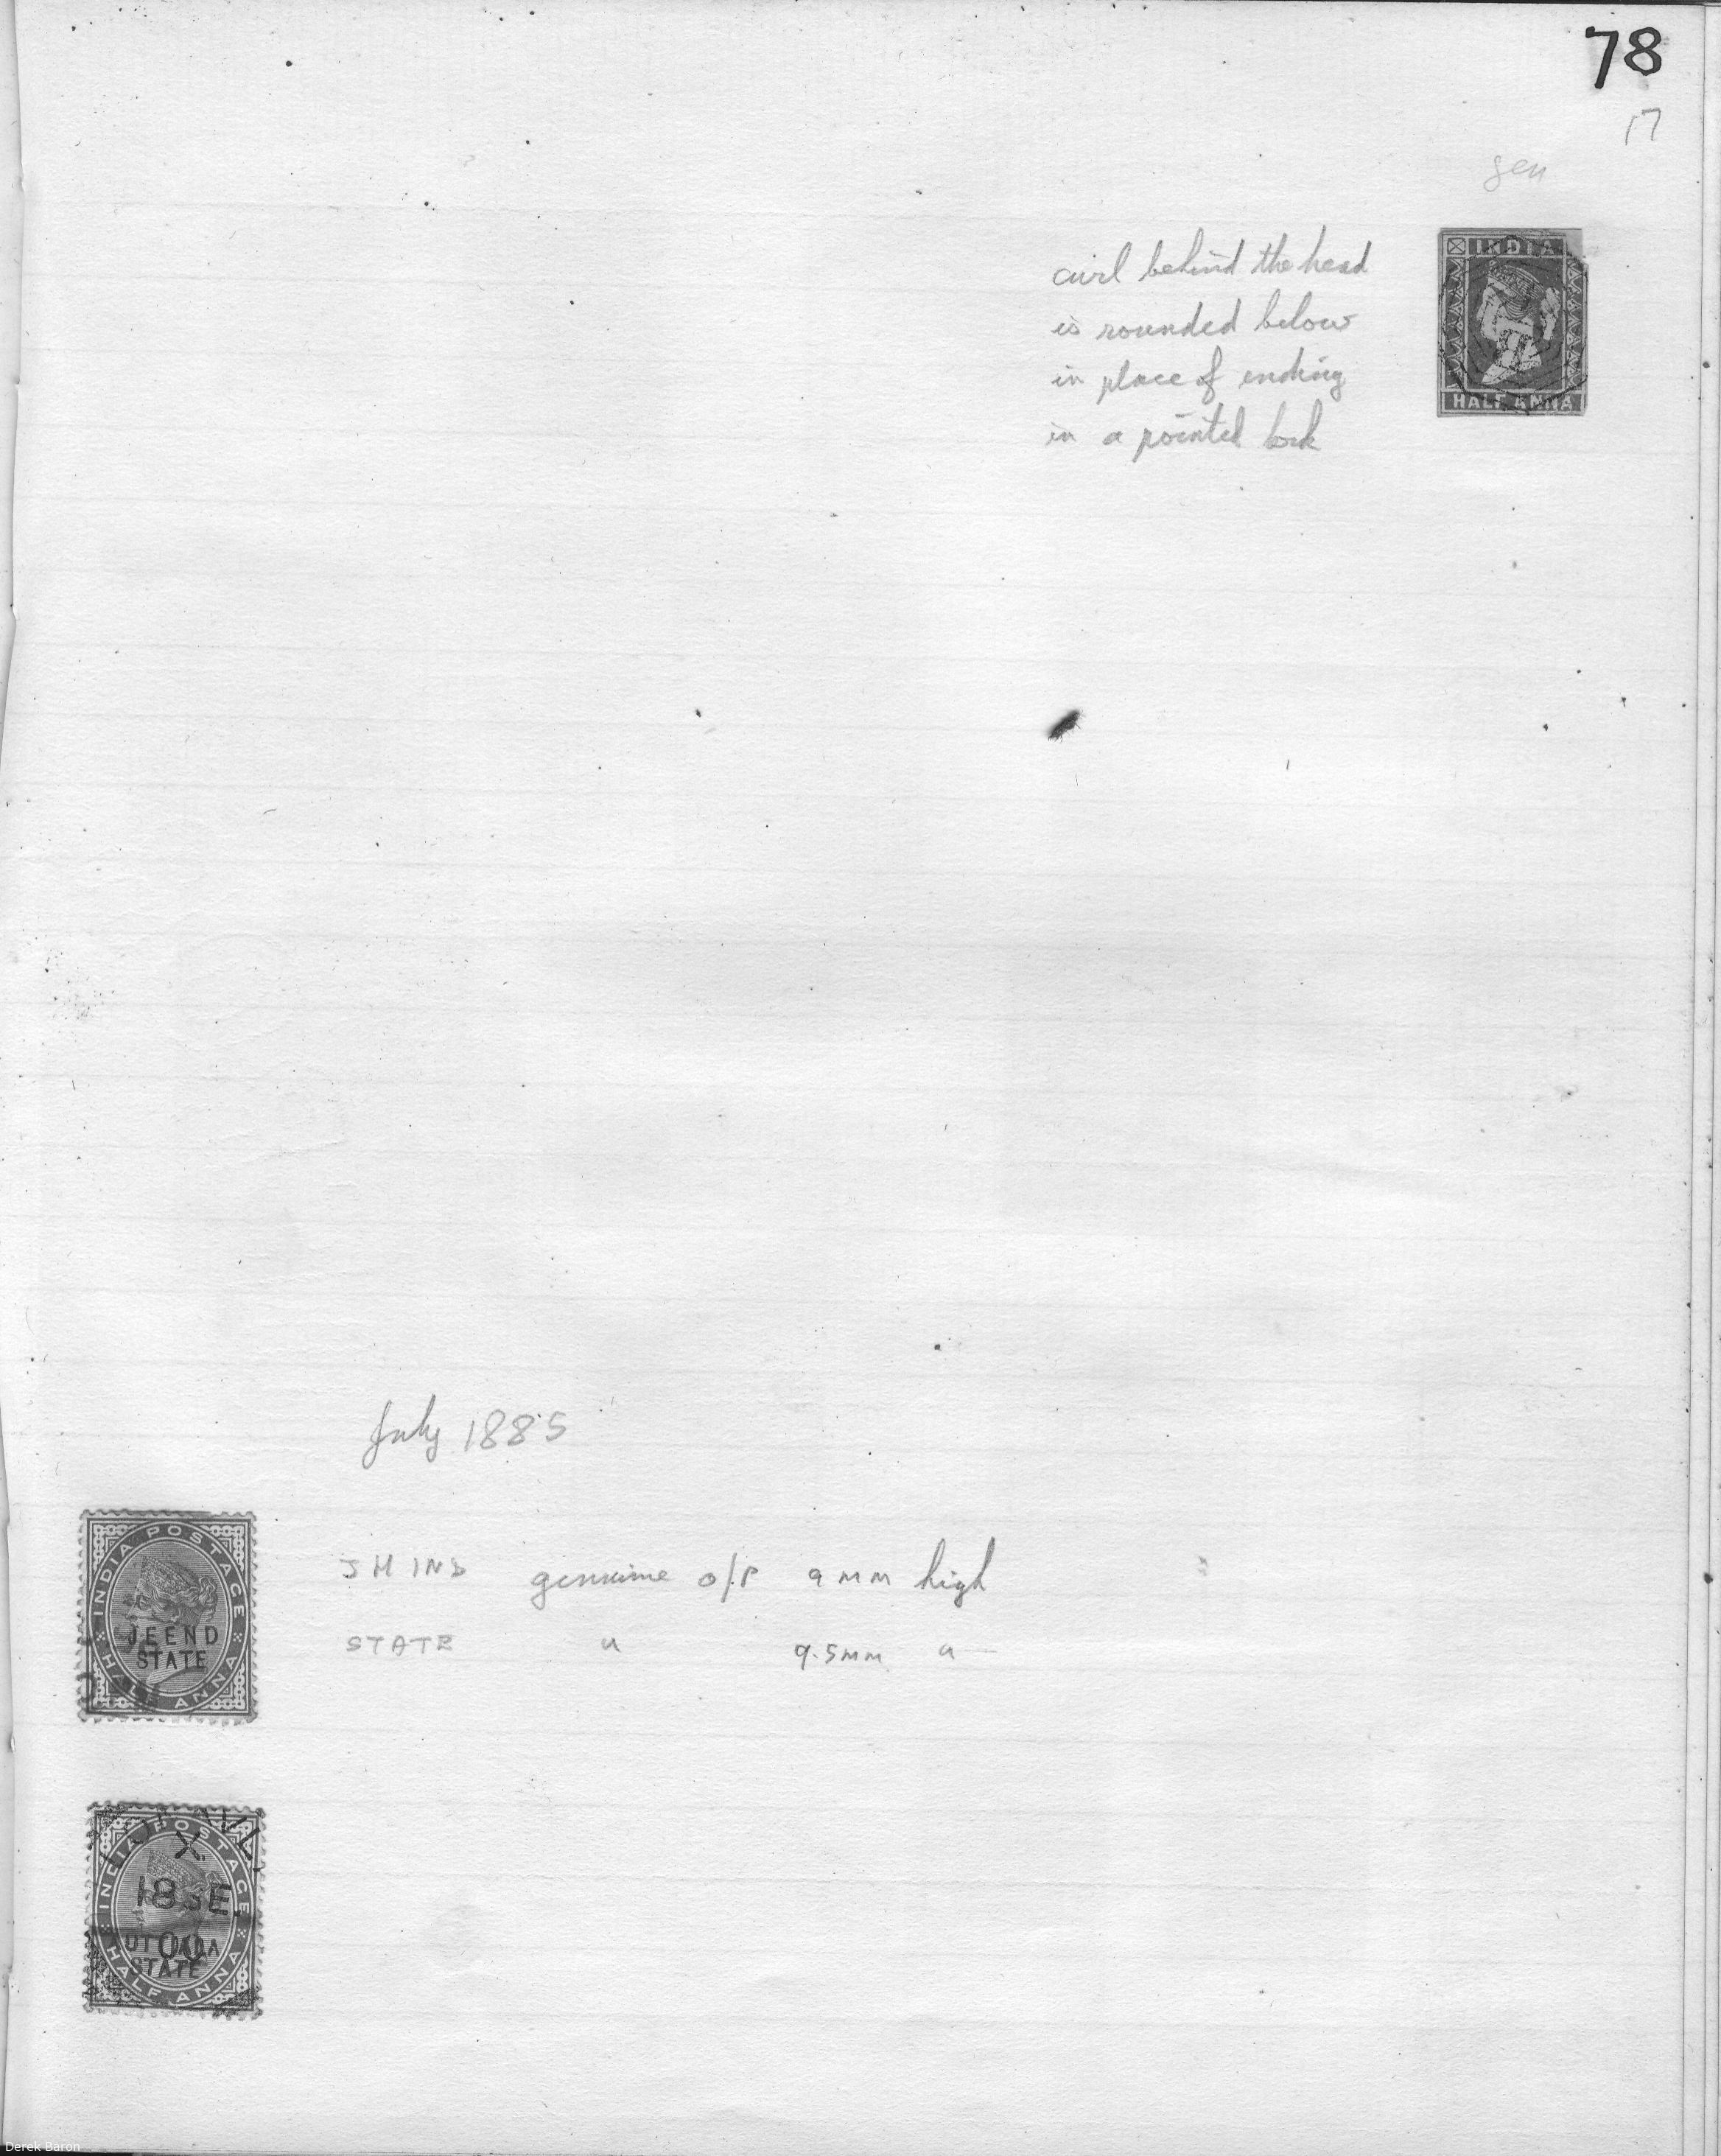 78
17
gen
curl behind the head
is rounded below
in place of ending
in a pointed lock
INDIA
HALF ANNA
July 1885
JHIND genuine o/p 9 MM high
STATE " 9.5MM "
INDIA POSTAGE
JEEND
STATE
HALF ANNA
INDIA POSTAGE
18 SE
00
STATE
HALF ANNA
Derek Baron